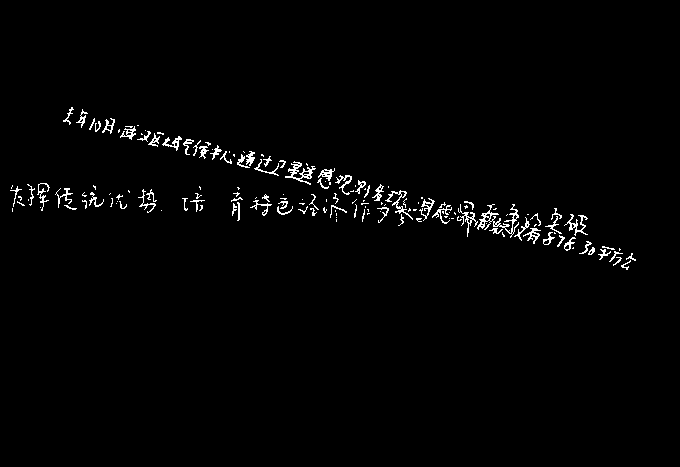 去年10月,武汉区域气候中心通过卫星遥感观测发现,有876.30平方公
发挥传统优势.培育特色经济作突破